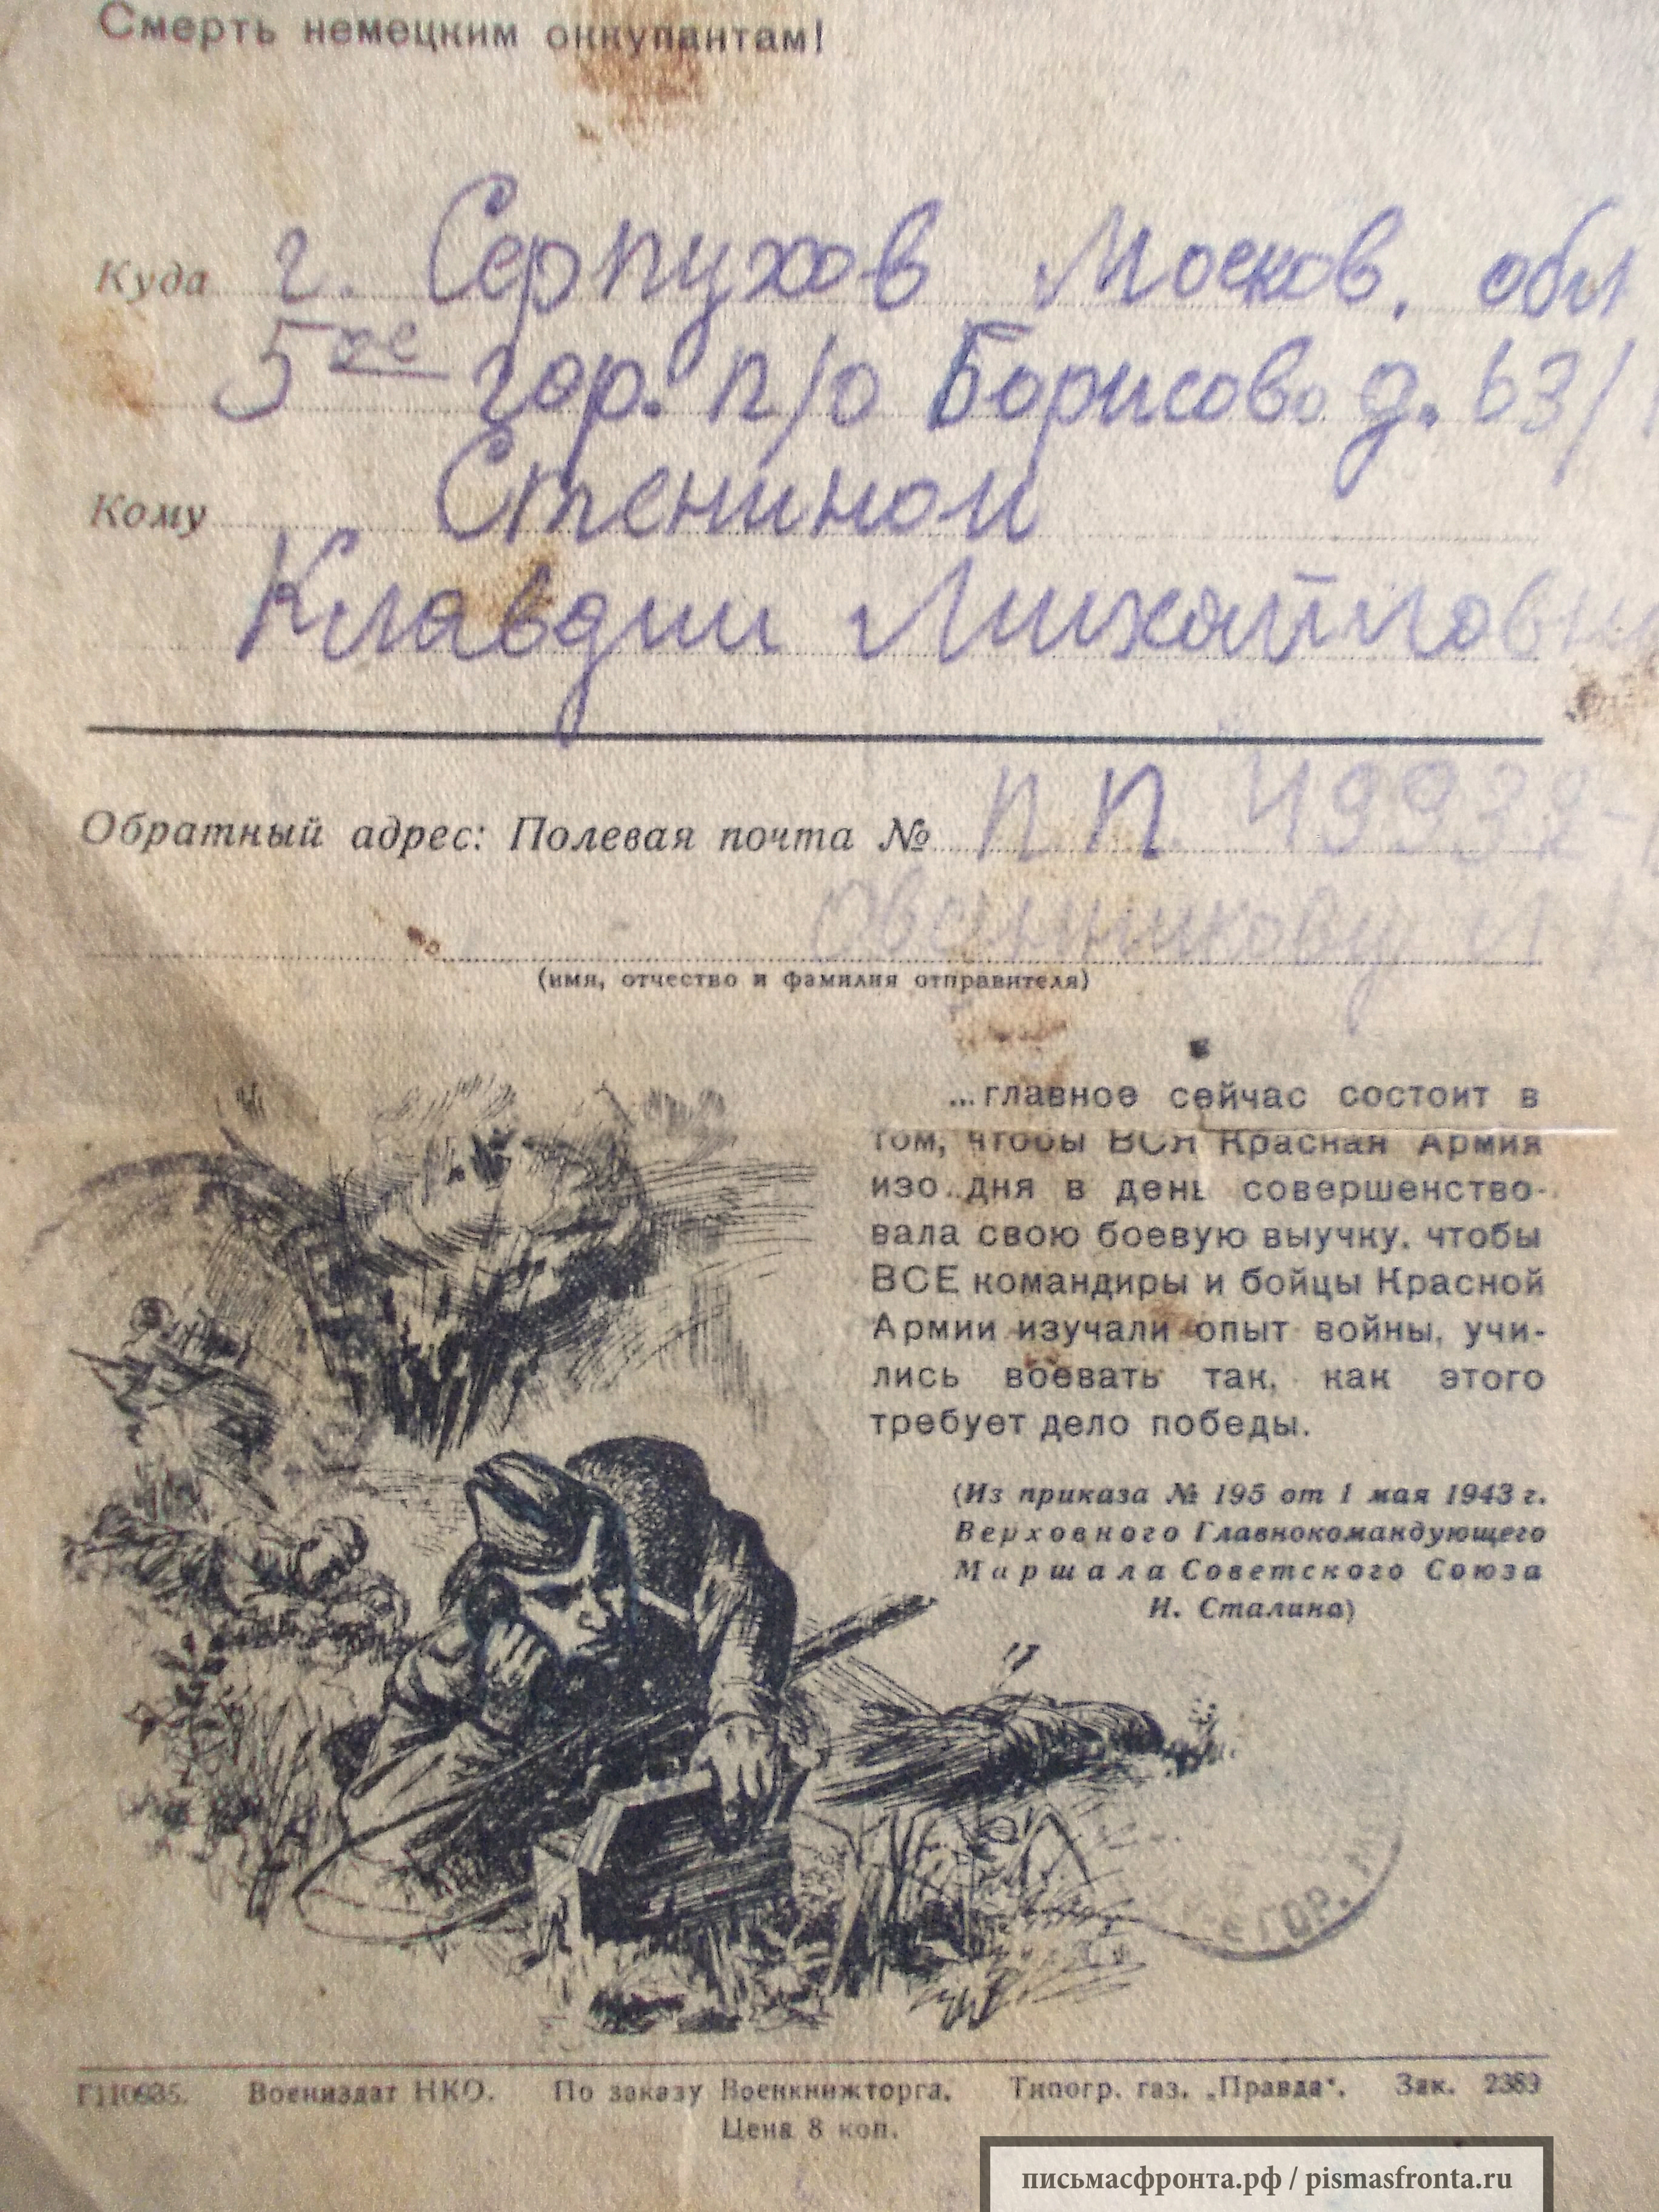 Смерть немецким оккупантам!
Куда г. Серпухов Москов. обл
5ое гор. п/о Борисово д. 63/
Кому Стениной
Клавдии Михайловн
Обратный адрес: Полевая почта № п.п. 49932-
Овчинникову
(имя, отчество и фамилия отправителя)
...главное сейчас состоит в
том, чтобы ВСЯ Красная Армия
изо дня в день совершенство-
вала свою боевую выучку, чтобы
ВСЕ командиры и бойцы Красной
Армии изучали опыт войны, учи-
лись воевать так, как этого
требует дело победы.
(Из приказа № 195 от 1 мая 1943 г.
Верховного Главнокомандующего
Маршала Советского Союза
И. Сталина)
ГОР.
Г110635. Воениздат НКО. По заказу Военкнижторга. Типогр. газ. „Правда“. Зак. 2389
Цена 8 коп.
письмасфронта.рф / pismasfronta.ru